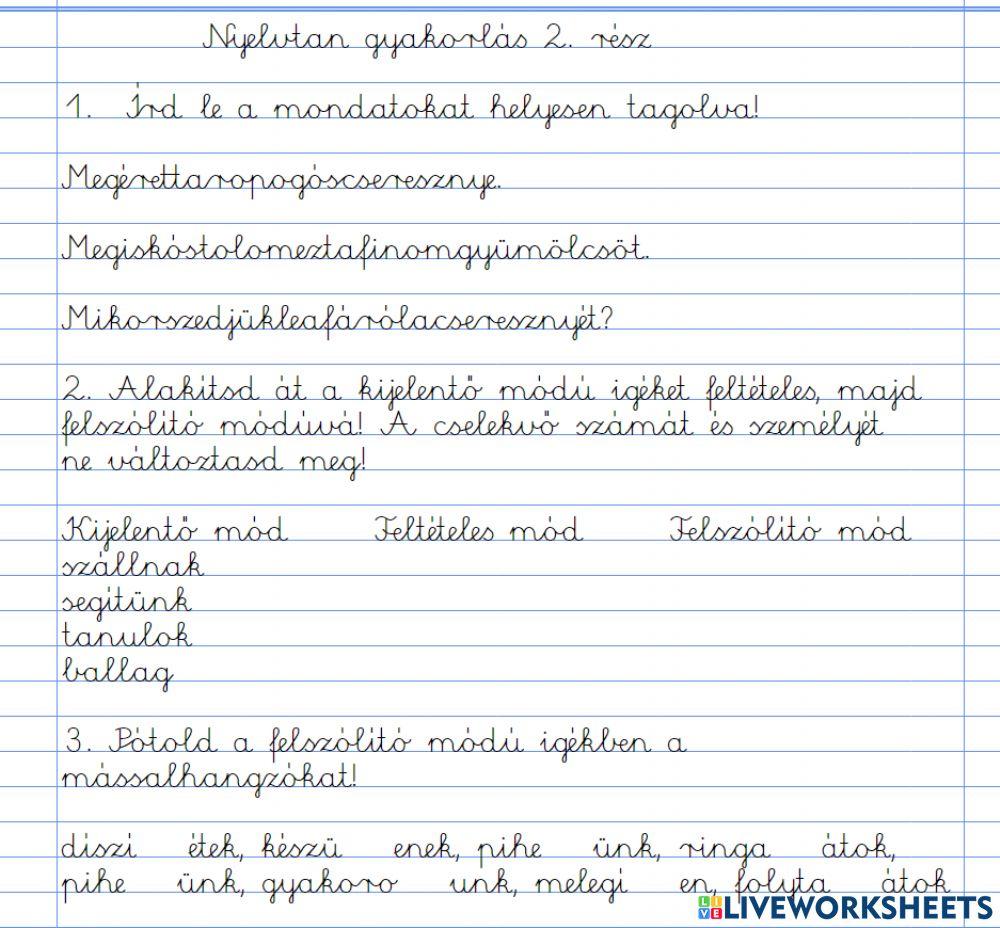 Nyelvtan gyakorlás 2. rész
1. Írd le a mondatokat helyesen tagolva!
Megérettaropogóscseresznye.
Megiskóstolomeztafinomgyümölcsöt.
Mikorszedjükleafárólacseresznyét?
2. Alakítsd át a kijelentő módú igéket feltételes, majd
felszólító módúvá! A cselekvő számát és személyét
ne változtasd meg!
Kijelentő mód Feltételes mód Felszólító mód
szállnak
segítünk
tanulok
ballag
3. Pótold a felszólító módú igékben a
mássalhangzókat!
díszí étek, készü enek, pihe ünk, ringa átok,
pihe ünk, gyakoro unk, melegí en, folyta átok
LIVEWORKSHEETS